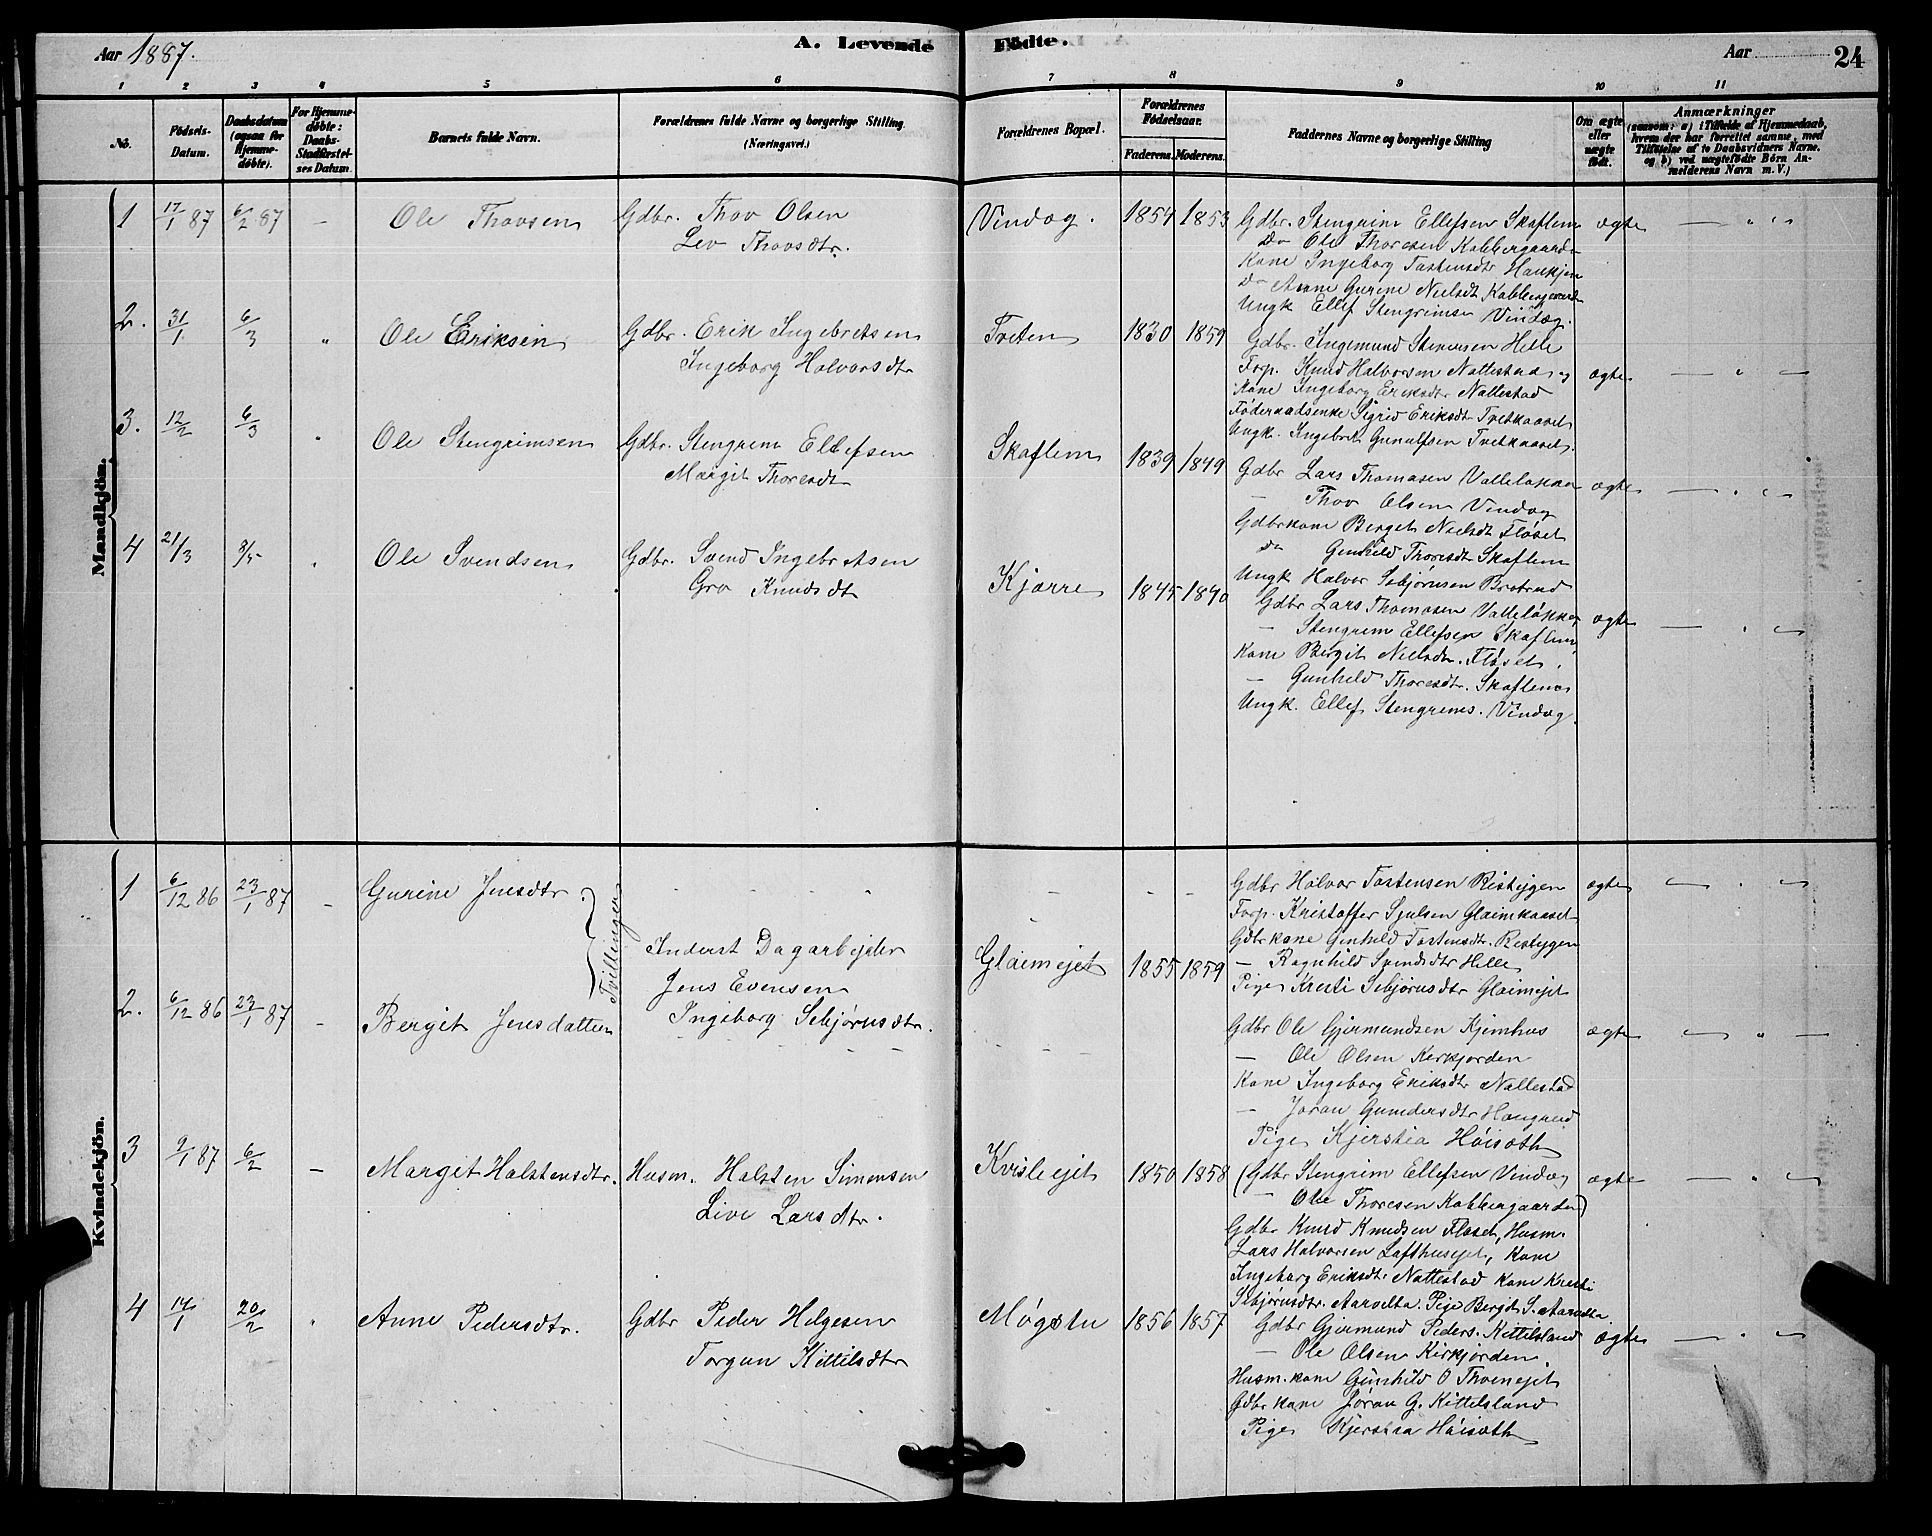 Aar 1887.
A. Levende Fødte.
Aar
24
1 2 3 4 5 6 7 8 9 10 11
No.
Fødsels-Datum.
Daabsdatum (ogsaa for Hjemme-døbte).
For Hjemme-døbte: Daabs-Stadfæstel-ses Datum.
Barnets fulde Navn.
Forældrenes fulde Navne og borgerlige Stilling (Næringsvei.)
Forældrenes Bopæl.
Forældrenes Fødselsaar.
Faderens. Moderens.
Faddernes Navne og borgerlige Stilling
Om ægte eller uægte født.
Anmærkninger
(saasom: a) i Tilfælde af Hjemmedaab, hvem der har forrettet samme, med Tilføielse af to Daabsvidners Navne, og b) ved uægtefødte Børn An-melderens Navn m. V.)
Mandkjøn.
1 17/1 87 6/2 87 — Ole Thovsen Gdbr. Thov Olsen Vindæg. 1854 1853 Gdbr. Stengrim Ellefsen Skaflem ægte — " —
Liv Thovsdtr. Do Ole Thoresen Kobbergaarden
Kone Ingeborg Tostensdtr Haukjen
Do Anne Gurine Nielsdt Kobbergaard
Ungk Ellef Stengrimsen Vindæg.
2. 31/1 6/3 " Ole Eriksen Gdbr. Erik Ingebretsen Tveten 1830 1859 Gdbr. Ingemund Stenersen Helle
Ingeborg Halvorsdtr Forp. Knud Halvorsen Nattestad og ægte — " —
Kone Ingeborg Eriksdtr Nattestad
Føderaadsenke Sigrid Eriksdt Tvetkaaset
Ungk. Ingebret Gunulfsen Tvetkaaset.
3. 12/2 6/3 " Ole Stengrimsen Gdbr. Stengrim Ellefsen Skaflem 1839 1849 Gdbr Lars Thomasen Valleløkken ægte — " —
Margit Thoresdt — Thov Olsen Vindæg
Gdbrkone Berget Nielsdt Fløset
do Gunhild Thoresdt Skaflem
Ungk Halvor Sebjørnsen Brobrud
4 21/3 8/5 " Ole Svendsen Gdbr. Svend Ingebretsen Kjørre 1845 1840 Gdbr Lars Thomasen Valleløkken ægte — " —
Gro Knudsdt — Stengrem Ellefsen Skaflem
Kone Bergit Nielsdr. Fløset.
— Gunhild Thoresdtr. Skaflem
Ungk. Ellef Stengrems. Vindæg.
Kvindekjøn.
1 6/12 86 23/1 87 — Gurine Jensdtr. - - - - - - - Gdbr Halvor Tostensen Ristygen ægte — " —
Tvillinger Forp. Kristoffer Sjulsen Glaimkaaset
Inderst Dagarbejder Gdbr kone Gunhild Tostensdtr. Ristygen
Jens Evensen Glaimejet 1855 1859 — Ragnhild Svendsdtr Helle
Ingeborg Sebjørnsdtr. Pige Kresti Sebjørnsdtr Glaimejet
2. 6/12 86 23/1 87 — Bergit Jensdatter - - - - Gdbr Ole Gjermundsen Kjemhus ægte — " —
— Ole Olsen Kirkjorden
Kone Ingeborg Eriksdtr Nattestad
— Joran Gundersdtr Haugrud
Pige Kjerstia Høisæth
3 9/1 87 6/2 — Margit Halstensdtr. Husm. Halsten Simensen Kvislejet 1850 1858 (Gdbr Stengrim Ellefsen Vindæg ægte — " —
Live Larsdtr. — Ole Thoresen Kobbergaarden)
Gdbr Knud Knudsen Fløset, Husm.
Lars Halvorsen Lofthusejet, Kone
Ingeborg Eriksdtr Nattestad Kone Kresti
Sebjørnsdtr. Aarvelta. Pige Bergit S. Aarvelta
4 14/1 20/2 " Anne Pedersdtr. Gdbr Peder Helgesen Møgstu 1856 1857 Gdbr Gjermund Peders. Kittilsland ægte — " —
Torgun Kittilsdtr — Ole Olsen Kirkjorden.
Husm.kone Gunhild O Thvenejet
Gdbr kone Joran G. Kittelsland
Pige Kjerstia Høisæth